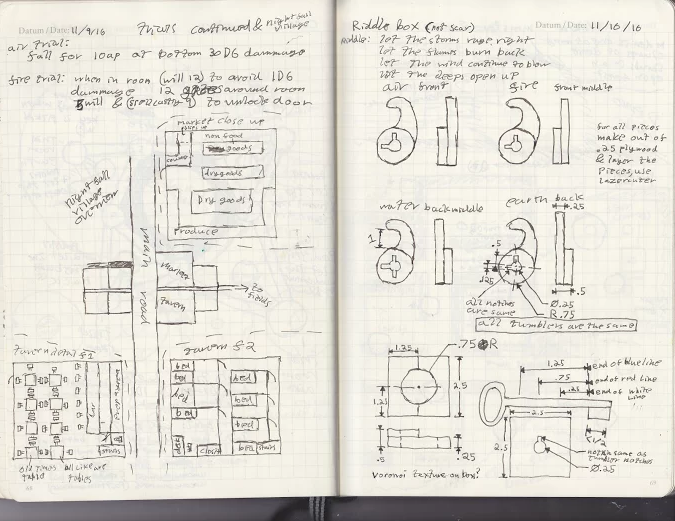 Datum / Date: 11/9/16
trials continued & nightfall village
air trial:
fall for 10ap at bottom 30D6 dammage
fire trial: when in room (will 12) to avoid 1D6
dammage 12 around room
5 will & (spellcasting 9) to unlock door
market close up
non food
goods
dry goods
Dry goods
Produce
nightfall
village
overview
main road
market
tavern
to
fields
tavern detail f1
bar
stairs
tables
tavern f2
bed
bed
bed
bed
bed
bed
closet
bed
stairs
Riddle box (not scar)
Datum / Date: 11/16/16
Riddle: let the storms rage, right
let the flames burn back
let the wind continue to blow
let the deeps open up
air front
fire front middle
for all pieces
make out of
.25 plywood
& layer the
pieces, use
lazercutter
water back middle
earth back
.25
1
.5
.125
.5
all notches
are same
Ø.25
R.75
all tumblers are the same
1.25
.75 R
2.5
1.25
.5
.25
Voronoi texture on box?
1.25
end of blue line
.75
end of red line
.25
end of white
line
2.5
2.5
1/2
notch same as
tumbler notches
Ø.25